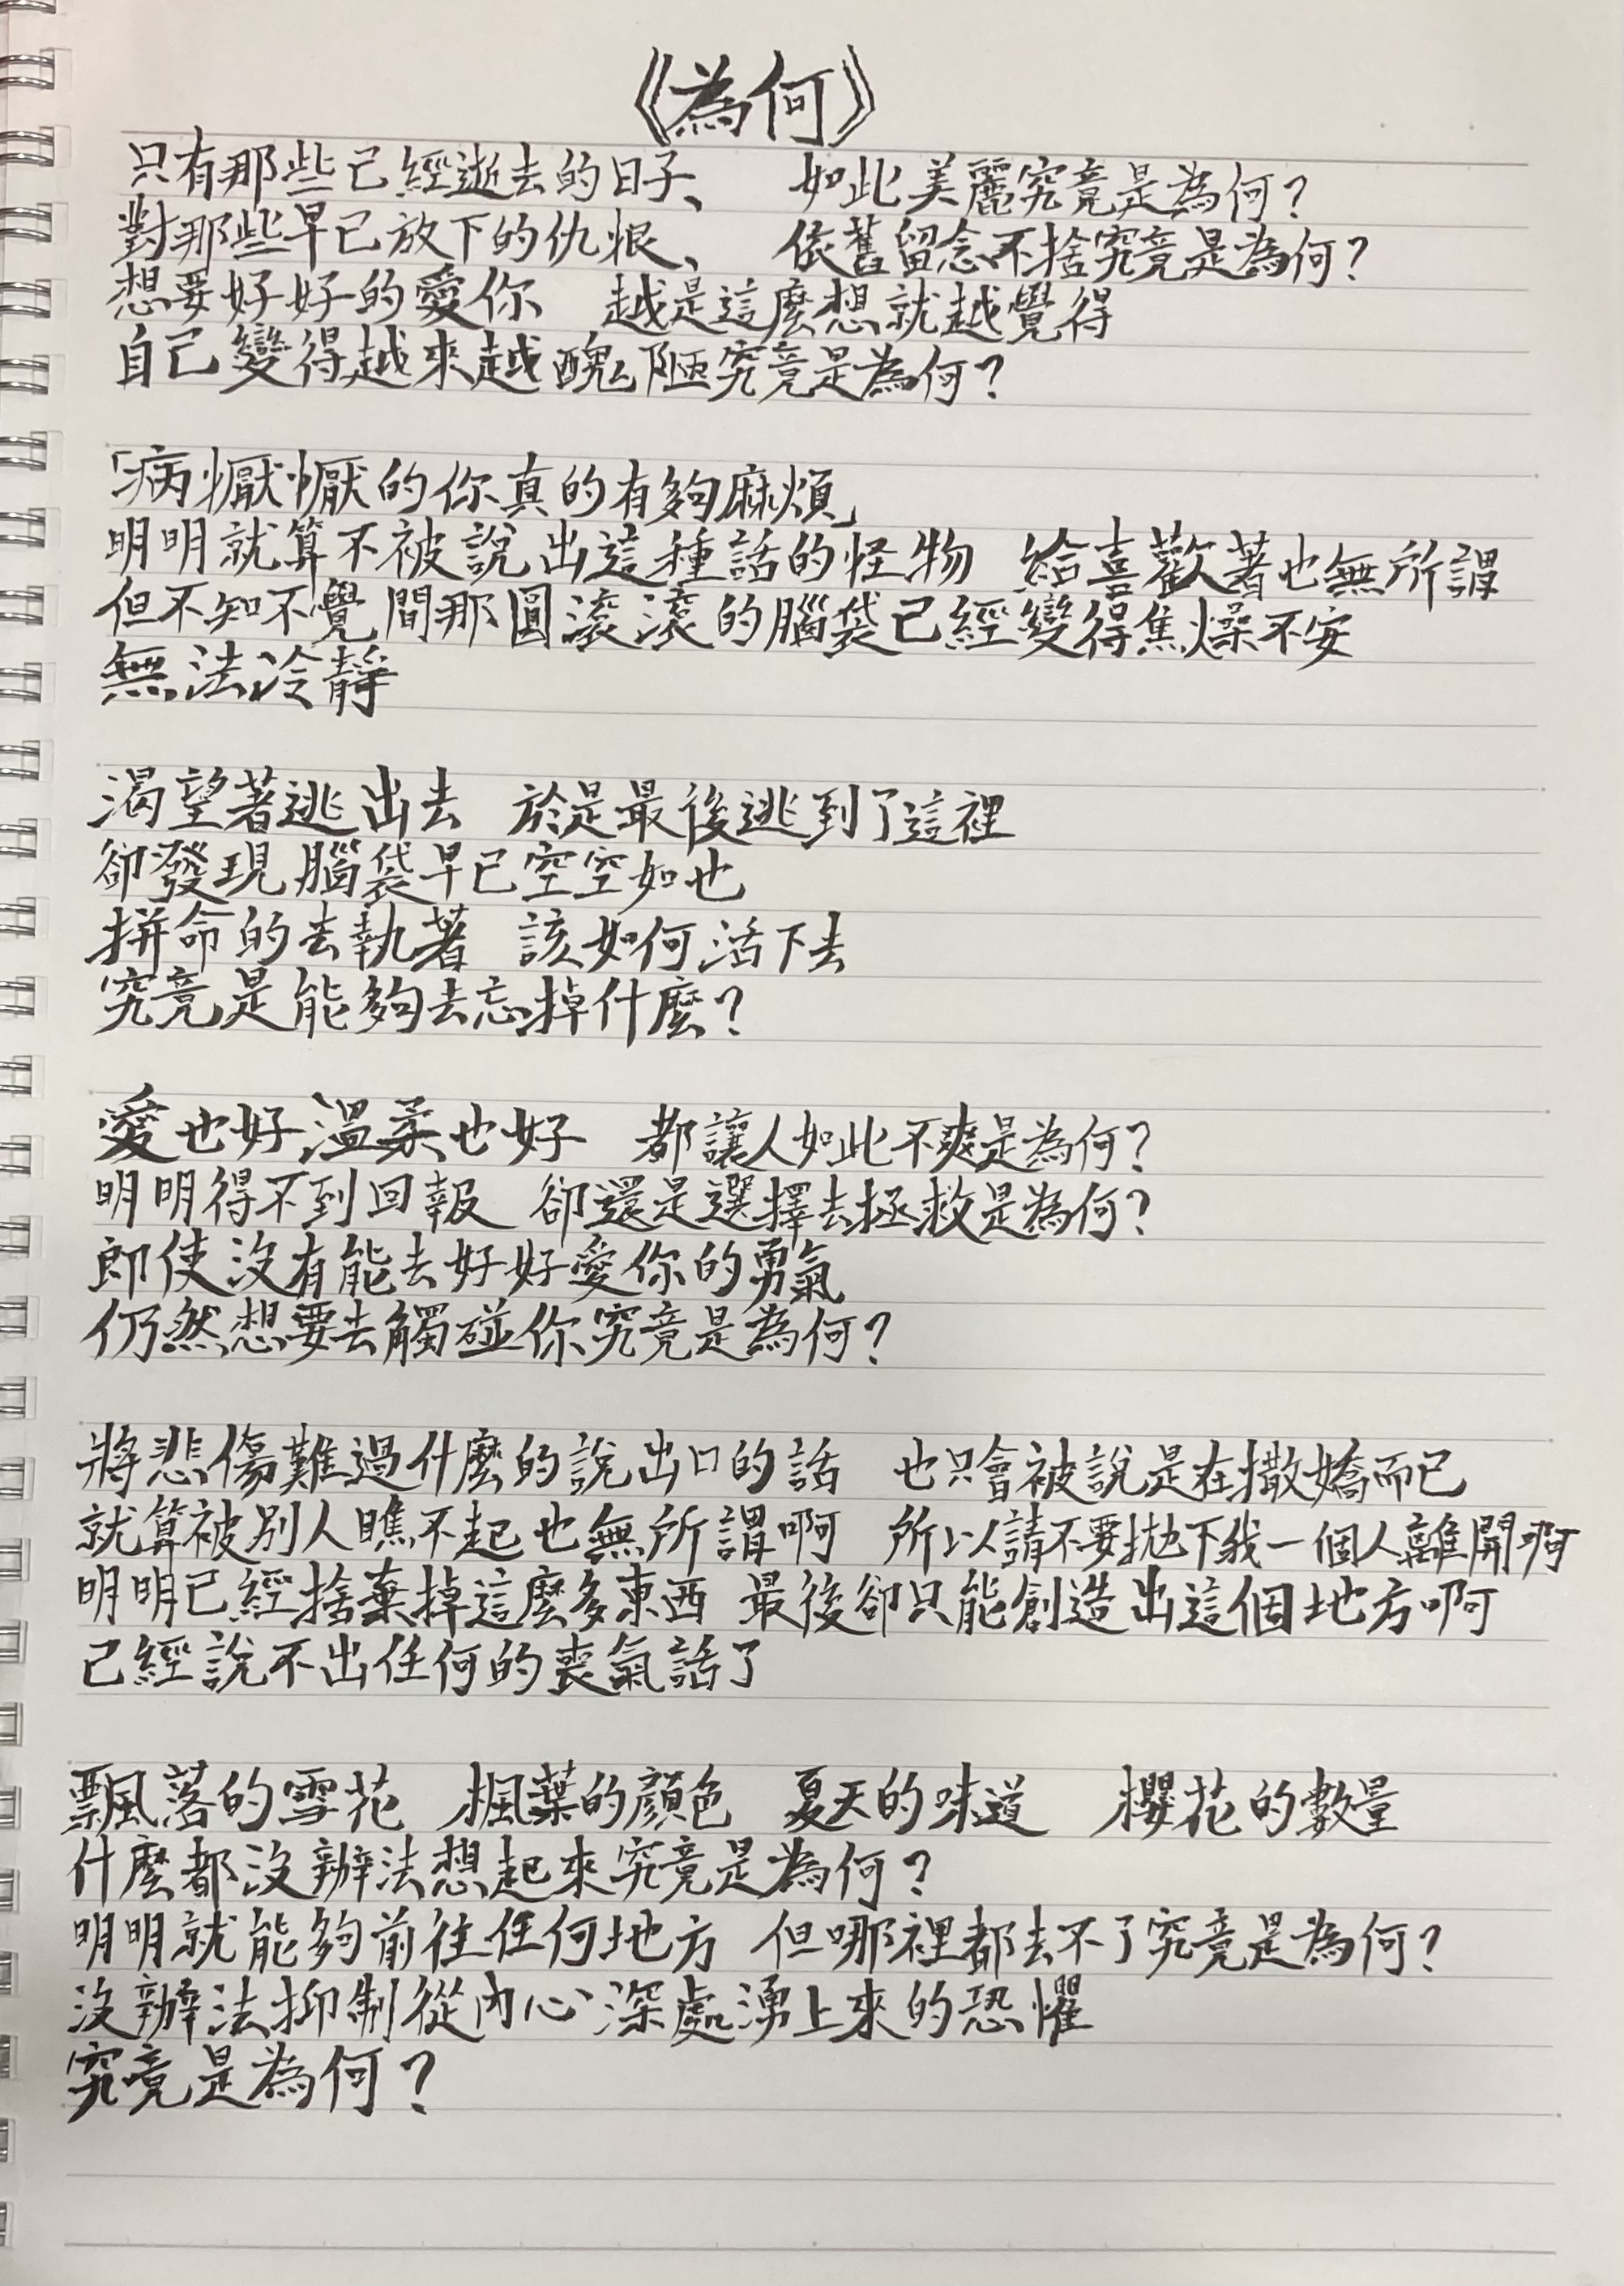 《為何》
只有那些已經逝去的日子、 如此美麗究竟是為何？
對那些早已放下的仇恨、 依舊留念不捨究竟是為何？
想要好好的愛你 越是這麼想就越覺得
自己變得越來越醜陋究竟是為何？
「病懨懨的你真的有夠麻煩」
明明就算不被說出這種話的怪物 給喜歡著也無所謂
但不知不覺間那圓滾滾的腦袋已經變得焦燥不安
無法冷靜
渴望著逃出去 於是最後逃到了這裡
卻發現腦袋早已空空如也
拼命的去執著 該如何活下去
究竟是能夠去忘掉什麼？
愛也好溫柔也好 都讓人如此不爽是為何？
明明得不到回報 卻還是選擇去拯救是為何？
即使沒有能去好好愛你的勇氣
仍然想要去觸碰你究竟是為何？
將悲傷難過什麼的說出口的話 也只會被說是在撒嬌而已
就算被別人瞧不起也無所謂啊 所以請不要拋下我一個人離開啊
明明已經捨棄掉這麼多東西 最後卻只能創造出這個地方啊
已經說不出任何的喪氣話了
飄落的雪花 楓葉的顏色 夏天的味道 櫻花的數量
什麼都沒辦法想起來究竟是為何？
明明就能夠前往任何地方 但哪裡都去不了究竟是為何？
沒辦法抑制從內心深處湧上來的恐懼
究竟是為何？